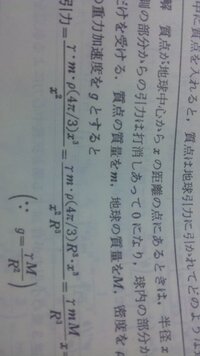 中に質点を入れると，質点は地球引力に引かれてどのような
解 質点が地球中心から x の距離の点にあるときは，半径 x
側の部分からの引力は打消しあって 0 になり，球内の部分か
だけを受ける．質点の質量を m，地球の質量を M，密度を ρ
の重力加速度を g とすると
引力=γ·m·ρ(4π/3)x³/x²=γm·ρ(4π/3)R³·x³/x²R³=γmM/R³ x
(∵ g=γM/R²)